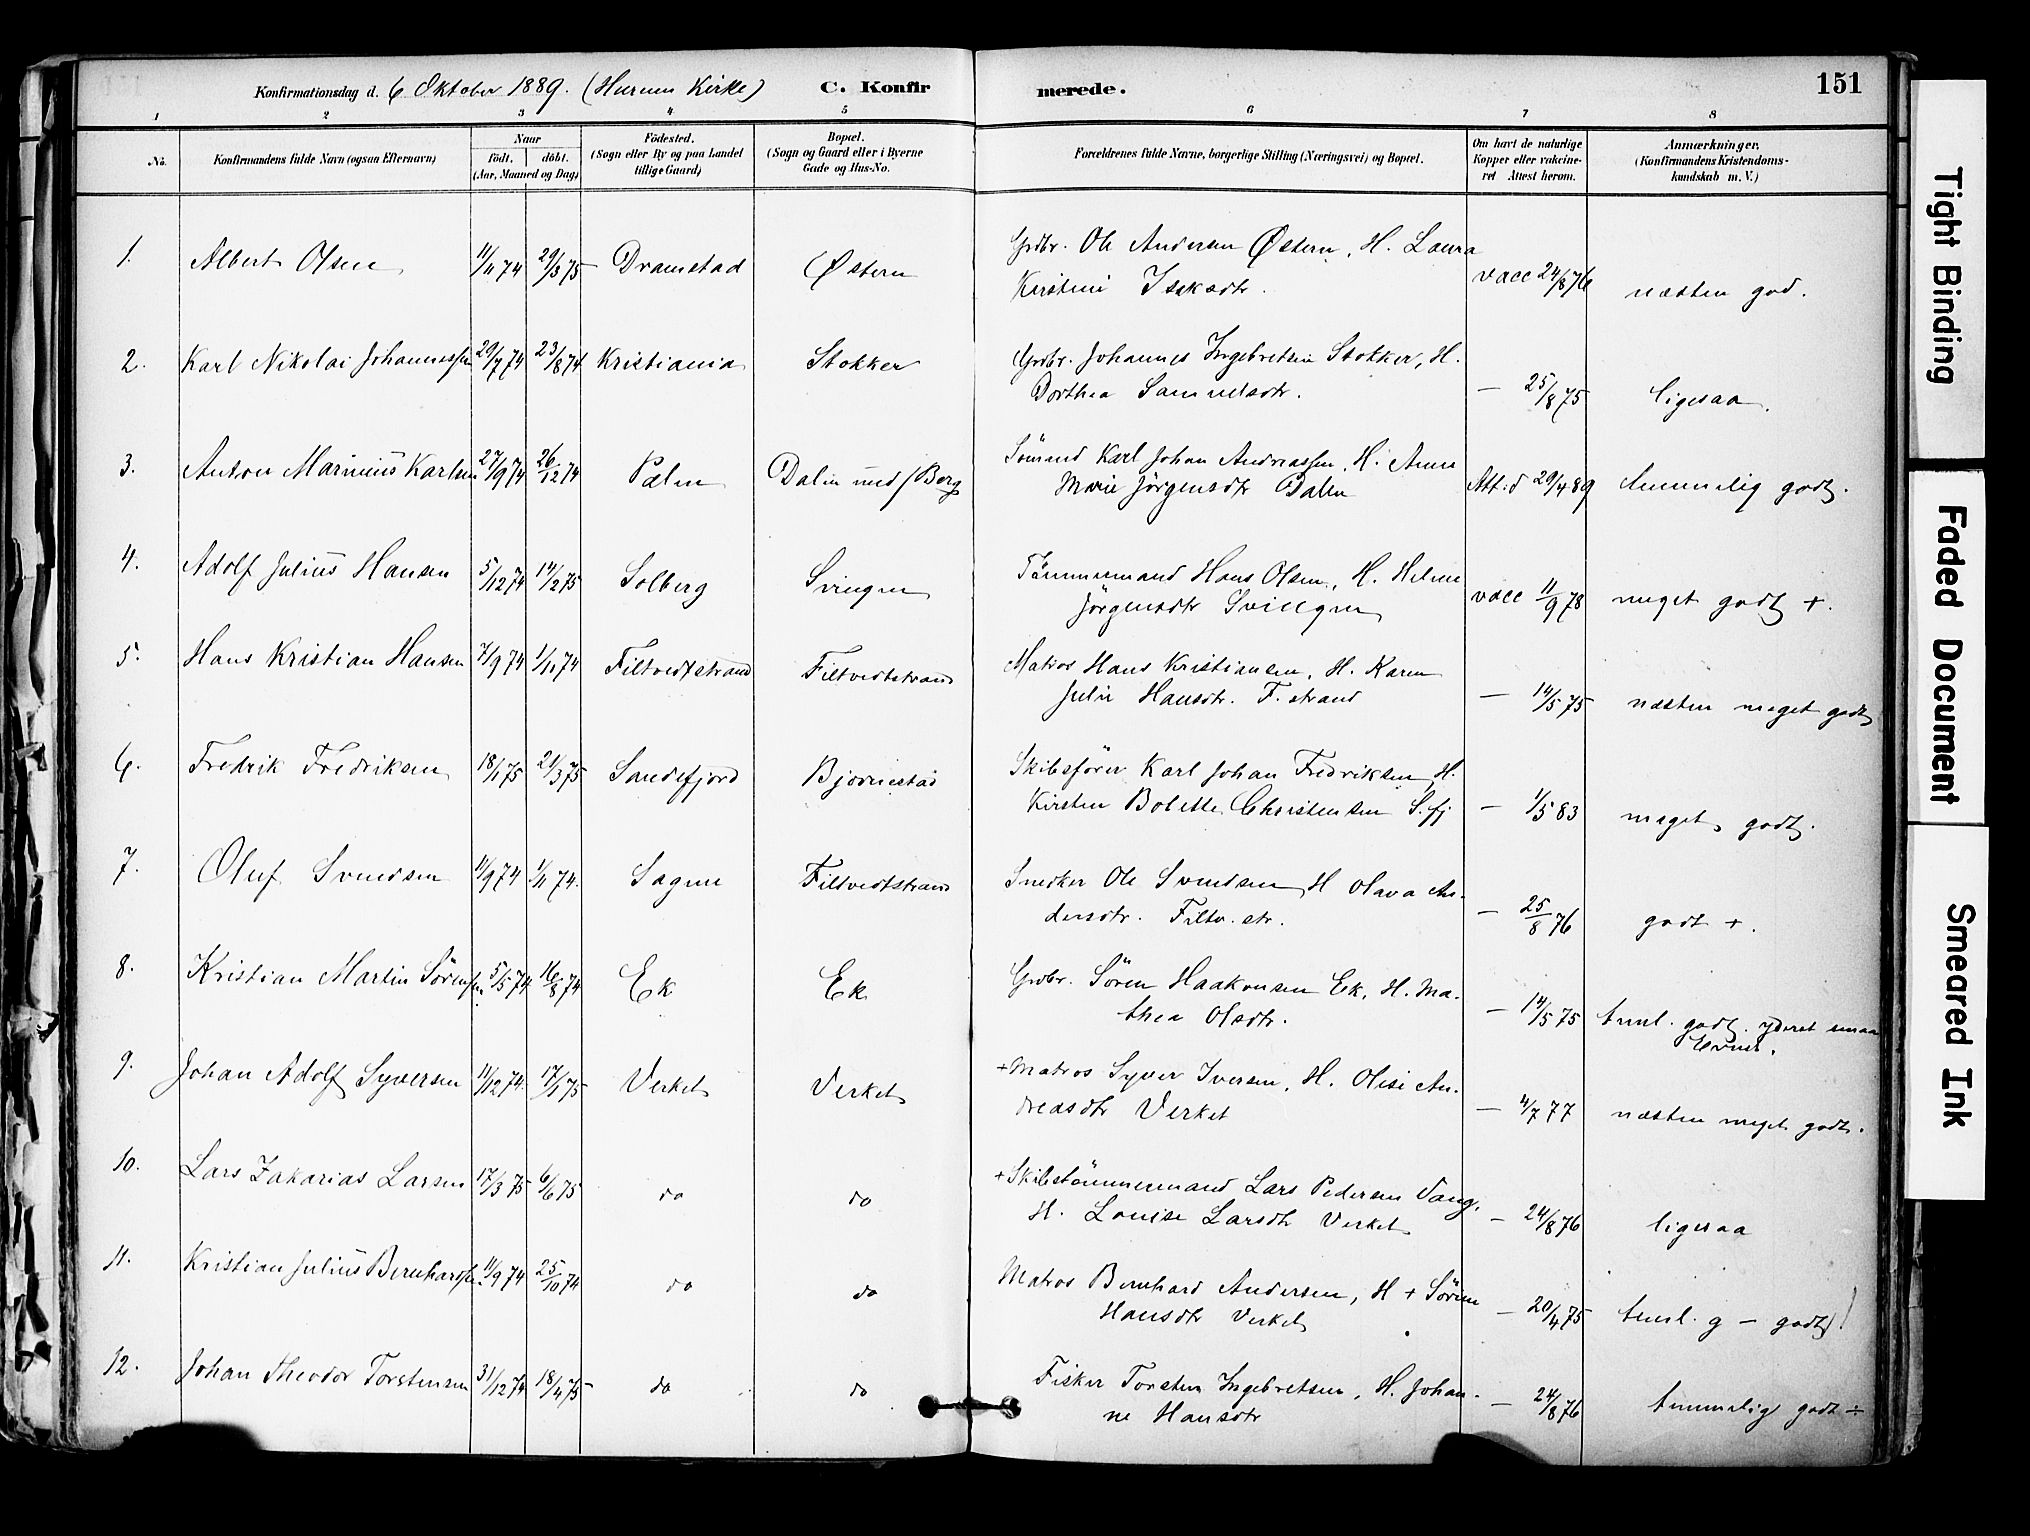 Konfirmationsdag d. 6 Oktober 1889. (Hurum Kirke) C. Konfirmerede. 151
1 2 3 4 5 6 7 8
No. Konfirmandens fulde Navn (ogsaa Efternavn) Naar födt. döbt. (Aar, Maaned og Dag) Födested. (Sogn eller By og paa Landet tillige Gaard) Bopæl. (Sogn og Gaard eller i Byerne Gade og Hus-No. Forældrenes fulde Navne, borgerlige Stilling (Næringsvei) og Bopæl. Om havt de naturlige Kopper eller vakcineret Attest herom. Anmærkninger. (Konfirmandens Kristendomskundskab m. V.)
1. Albert Olsen 11/11 74 29/3 75 Dramstad Østern Grdbr. Ole Andersen Østern, H. Laura
Kirstine Isaksdtr. vacc 24/8 76 næsten god.
2. Karl Nikolai Johannessen 29/7 74 23/8 74 Kristiania Stokker Grdbr. Johannes Ingebretsen Stokker, H.
Dorthea Samuelsdtr. — 25/8 75 ligesaa.
3. Anton Marinius Karlsen 27/9 74 26/12 74 Dalen und/Berg Sömnd Karl Johan Andreassen, H. Anne
Marie Jörgensdtr Dalen Att: d 29/4 89 temmelig godt.
4. Adolf Julius Hansen 5/12 74 14/2 75 Solberg Svingen Tömmermand Hans Olsen, H. Helene
Jörgensdtr Svingen vacc 11/9 78 meget godt +.
5. Hans Kristian Hansen 7/9 74 1/11 74 Filtvedtstrand Filtvedtstrand Matros Hans Kristiansen, H. Karen
Julie Hansdtr. F. strand — 14/5 75 næsten meget godt
6. Fredrik Fredriksen 18/1 75 21/3 75 Sandefjord Bjørnestad Skibsförer Karl Johan Fredriksen, H.
Kirsten Bolette Christensen S.fj — 1/5 83 meget godt.
7. Oluf Svendsen 11/9 74 1/11 74. Sagene Filtvedtstrand Snedker Ole Svendsen, H Olava An-
dersdtr. Filtv. str. — 25/8 76 godt +.
8. Kristian Martin Sörensen. 5/5 74 16/8 74 Ek Ek Grdbr. Sören Haakonsen Ek, H. Ma-
thea Olsdtr. — 14/5 75 teml. godt. yderst smaa
Evner.
9. Johan Adolf Syversen 11/12 74. 17/1 75 Verket Verket + Matros Syver Iversen, H. Olise An-
dreasdtr Verket — 4/7 77 næsten meget godt.
10. Lars Zakarias Larsen 17/3 75 6/6 75 do do + Skibstömmermand Lars Pedersen Vang,
H. Louise Larsdtr Verket — 24/8 76 ligesaa
11. Kristian Julius Bernhardsen. 11/9 74 25/10 74 do do Matros Bernhard Andersen, H + Sörine
Hansdtr Verket — 20/4 75 teml. g — godt!
12. Johan Theodor Torstensen 31/12 74 18/4 75 do do Fisker Torsten Ingebretsen, H. Johan-
ne Hansdtr — 24/8 76 temmelig godt ÷
Tight Binding
Faded Document
Smeared Ink